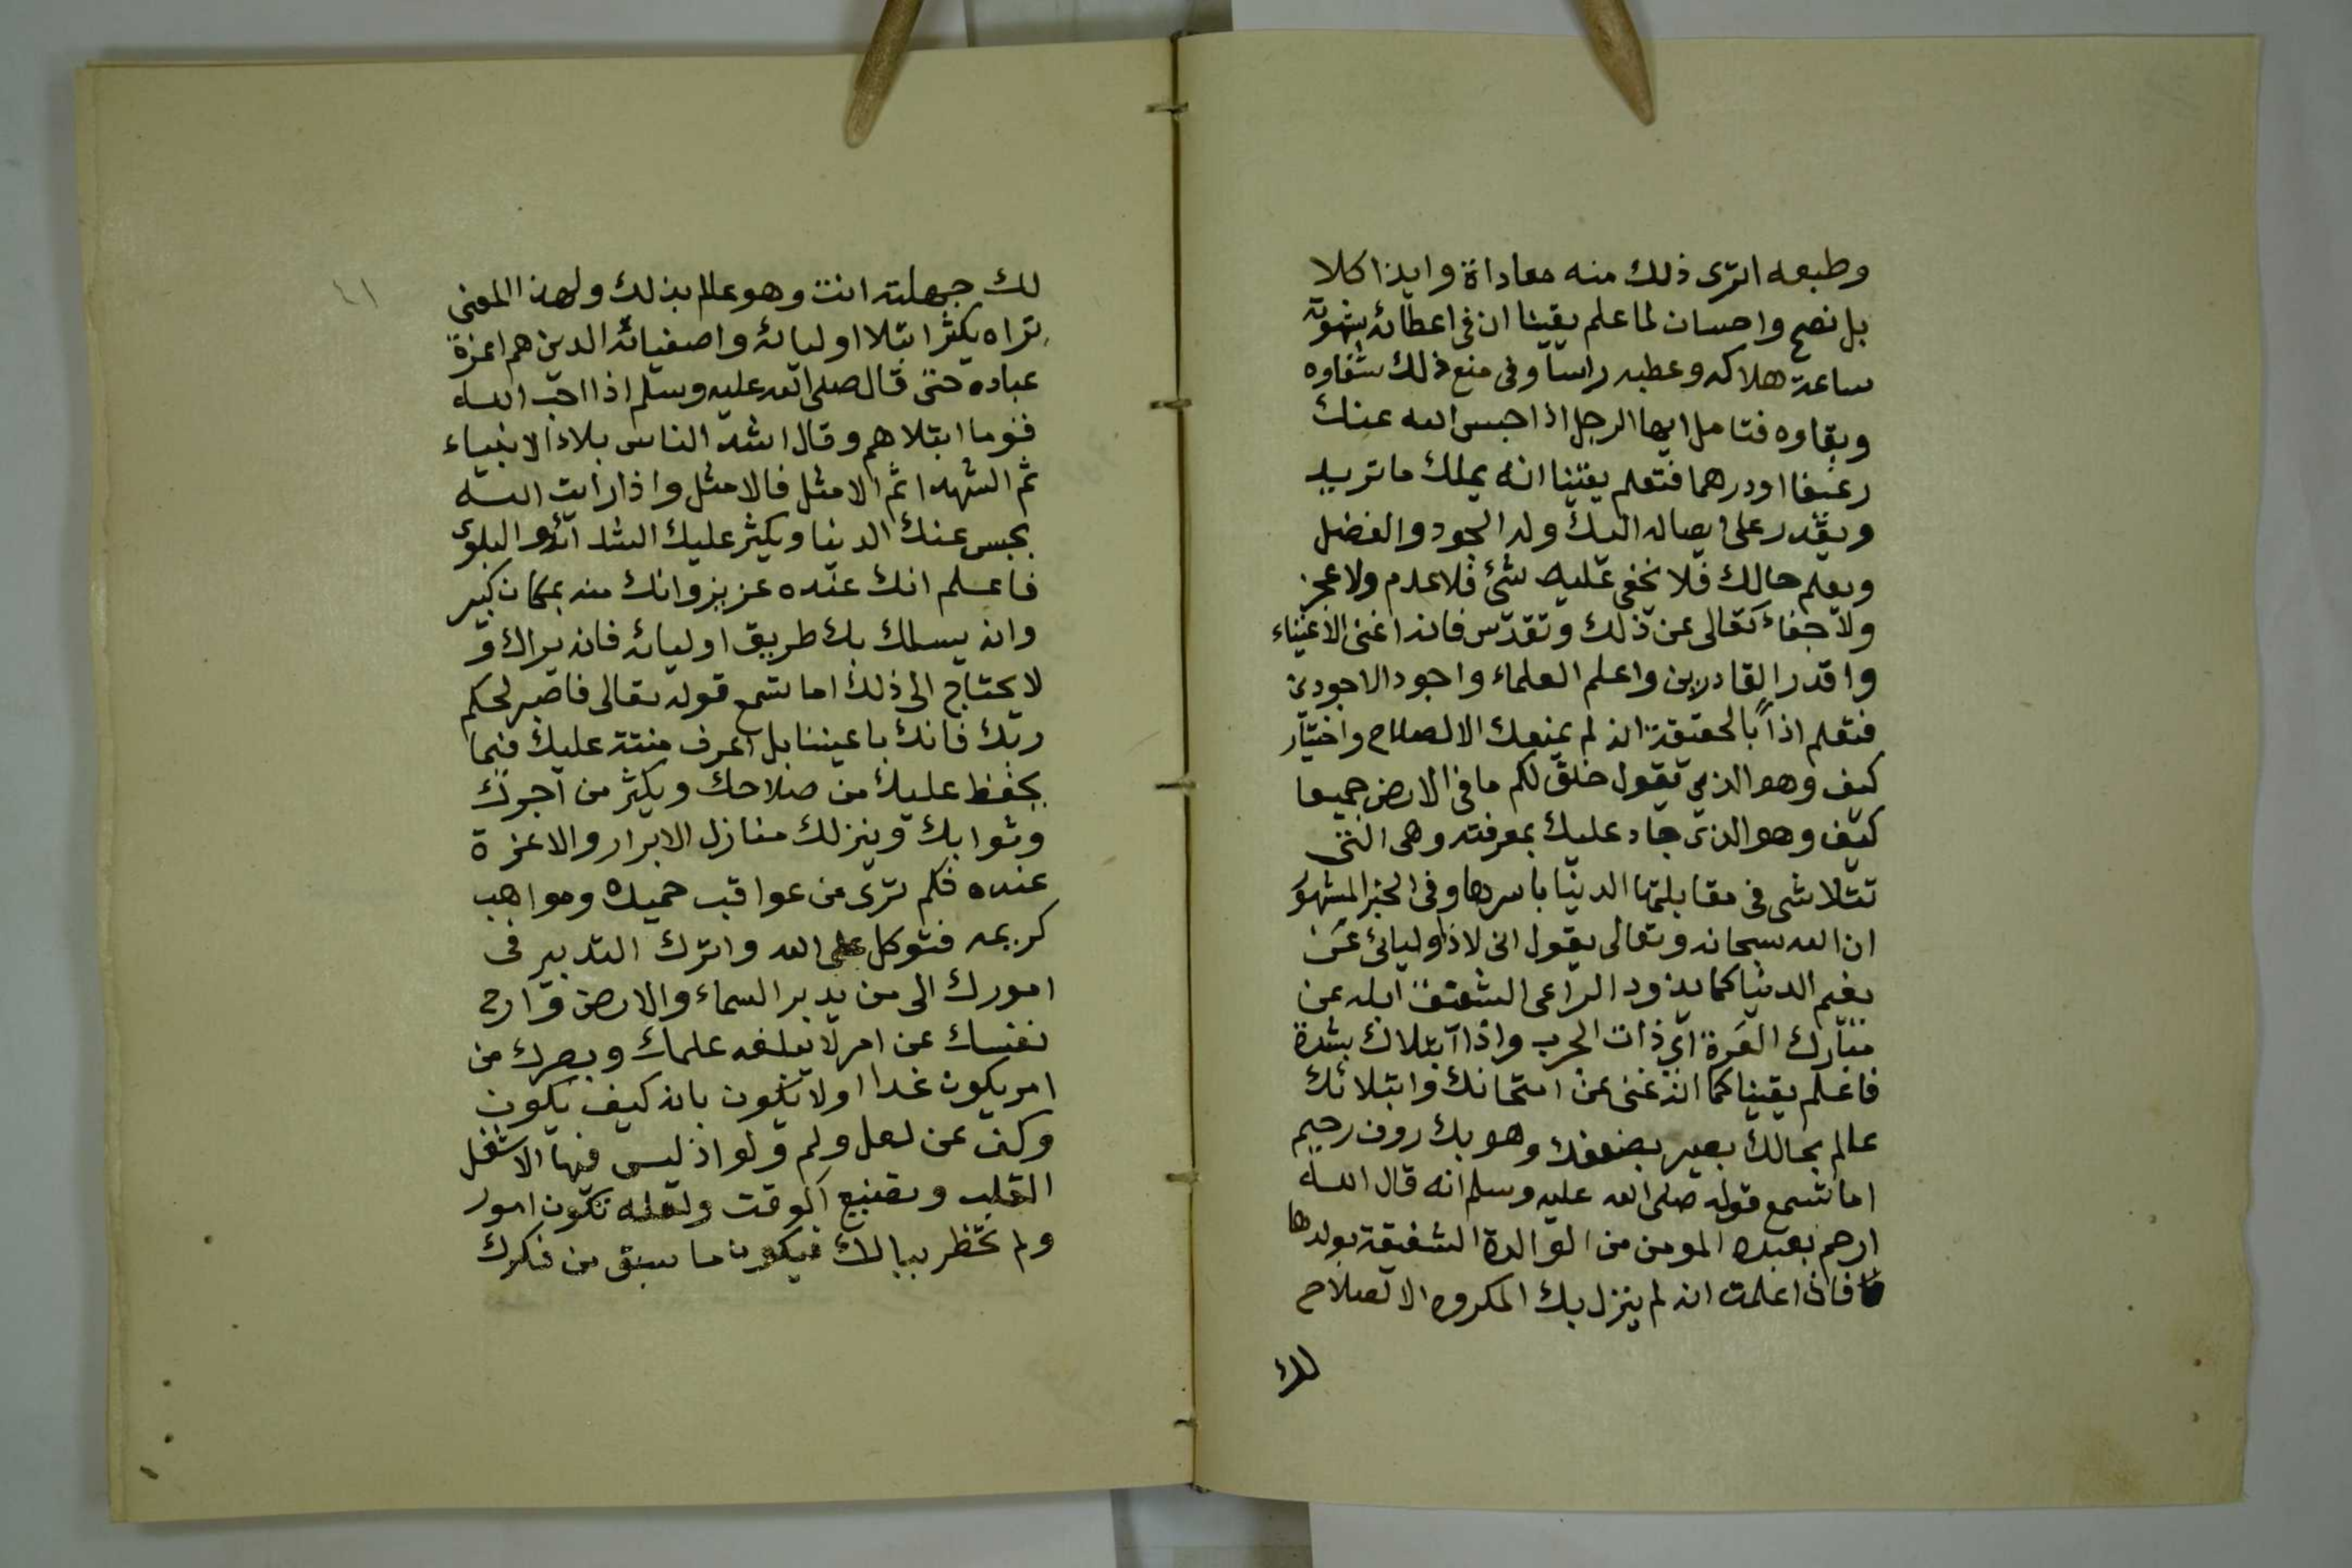 وطبعه اترى ذلك منه معاداة وايذا كلا
بل نصح واحسان لما علم يقينا ان فى اعطائه شهوته
ساعة هلاكه وعطبه راسا وفى منع ذلك شفاوه
وبقاوه فتامل ايها الرجل اذا حبس الله عنك
رغيفا او درهما فتعلم يقينا انه يملك ما تريد
ويقدر على ايصاله اليك وله الجود والفضل
ويعلم حالك فلا يخفى عليه شئ فلا عدم ولا عجز
ولا جفاء تعالى عن ذلك وتقدّس فانه اغنى الاغنياء
واقدر القادرين واعلم العلماء واجود الاجودين
فتعلم اذاً بالحقيقة انه لم يمنعك الا لصلاح واختيار
كيف وهو الذي يقول خلق لكم ما فى الارض جميعا
كيف وهو الذى جاد عليك بمعرفته وهى التى
تتلاشى فى مقابلتها الدنيا باسرها وفى الخبر المشهور
ان الله سبحانه وتعالى يقول انى لاذا اوليائ عن
نعيم الدنيا كما يذود الراعى الشفيق ابله عن
مبارك العَرة اي ذات الجرب واذا ابتلاك بشدة
فاعلم يقينا كما انه غنى عن امتحانك وابتلائك
عالم بحالك بصير بضعفك وهو بك روف رحيم
اما تسمع قوله صلى الله عليه وسلم انه قال الله
ارحم بعبده المومن من الوالدة الشفيقة بولدها
فاذا علمت انه لم ينزل بك المكروه الا لصلاح
لك
٤١
لك جهلته انت وهو عالم بذلك ولهذا المعنى
تراه يكثر ابتلا اوليائه واصفيائه الذين هم اعزة
عباده حتى قال صلى الله عليه وسلم اذا احب الله
قوما ابتلاهم وقال اشد الناس بلاء الانبياء
ثم الشهدا ثم الامثل فالامثل واذا رايت الله
يحبس عنك الدنيا ويكثر عليك الشدائد والبلوى
فاعلم انك عنده عزيز وانك منه بمكان كبير
وانه يسلك بك طريق اوليائه فانه يراك و
لا يحتاج الى ذلك اما تسمع قوله تعالى فاصبر لحكم
ربك فانك باعيننا بل اعرف منته عليك فيما
يحفظ عليك من صلاحك ويكثر من اجرك
وثوابك وينزلك منازل الابرار والاعزة
عنده فكم ترى من عواقب حميده ومواهب
كريمه فتوكل على الله واترك التدبير فى
امورك الى من يدبر السماء والارض وارح
نفسك عن امر لا يبلغه علمك وبصرك من
امر يكون غدا اولا يكون بانه كيف يكون
وكف عن لعل ولم ولو اذ ليس فيها الا شغل
القلب وتضييع الوقت ولعله تكون امور
ولم تخطر ببالك فيكون ما سبق من فكرك